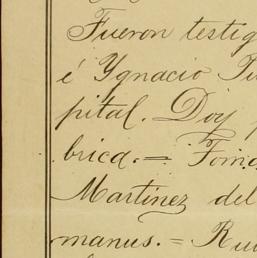 Fueron testig
é Ygnacio
pital. Doy
brica.=
Martinez del
manus.=